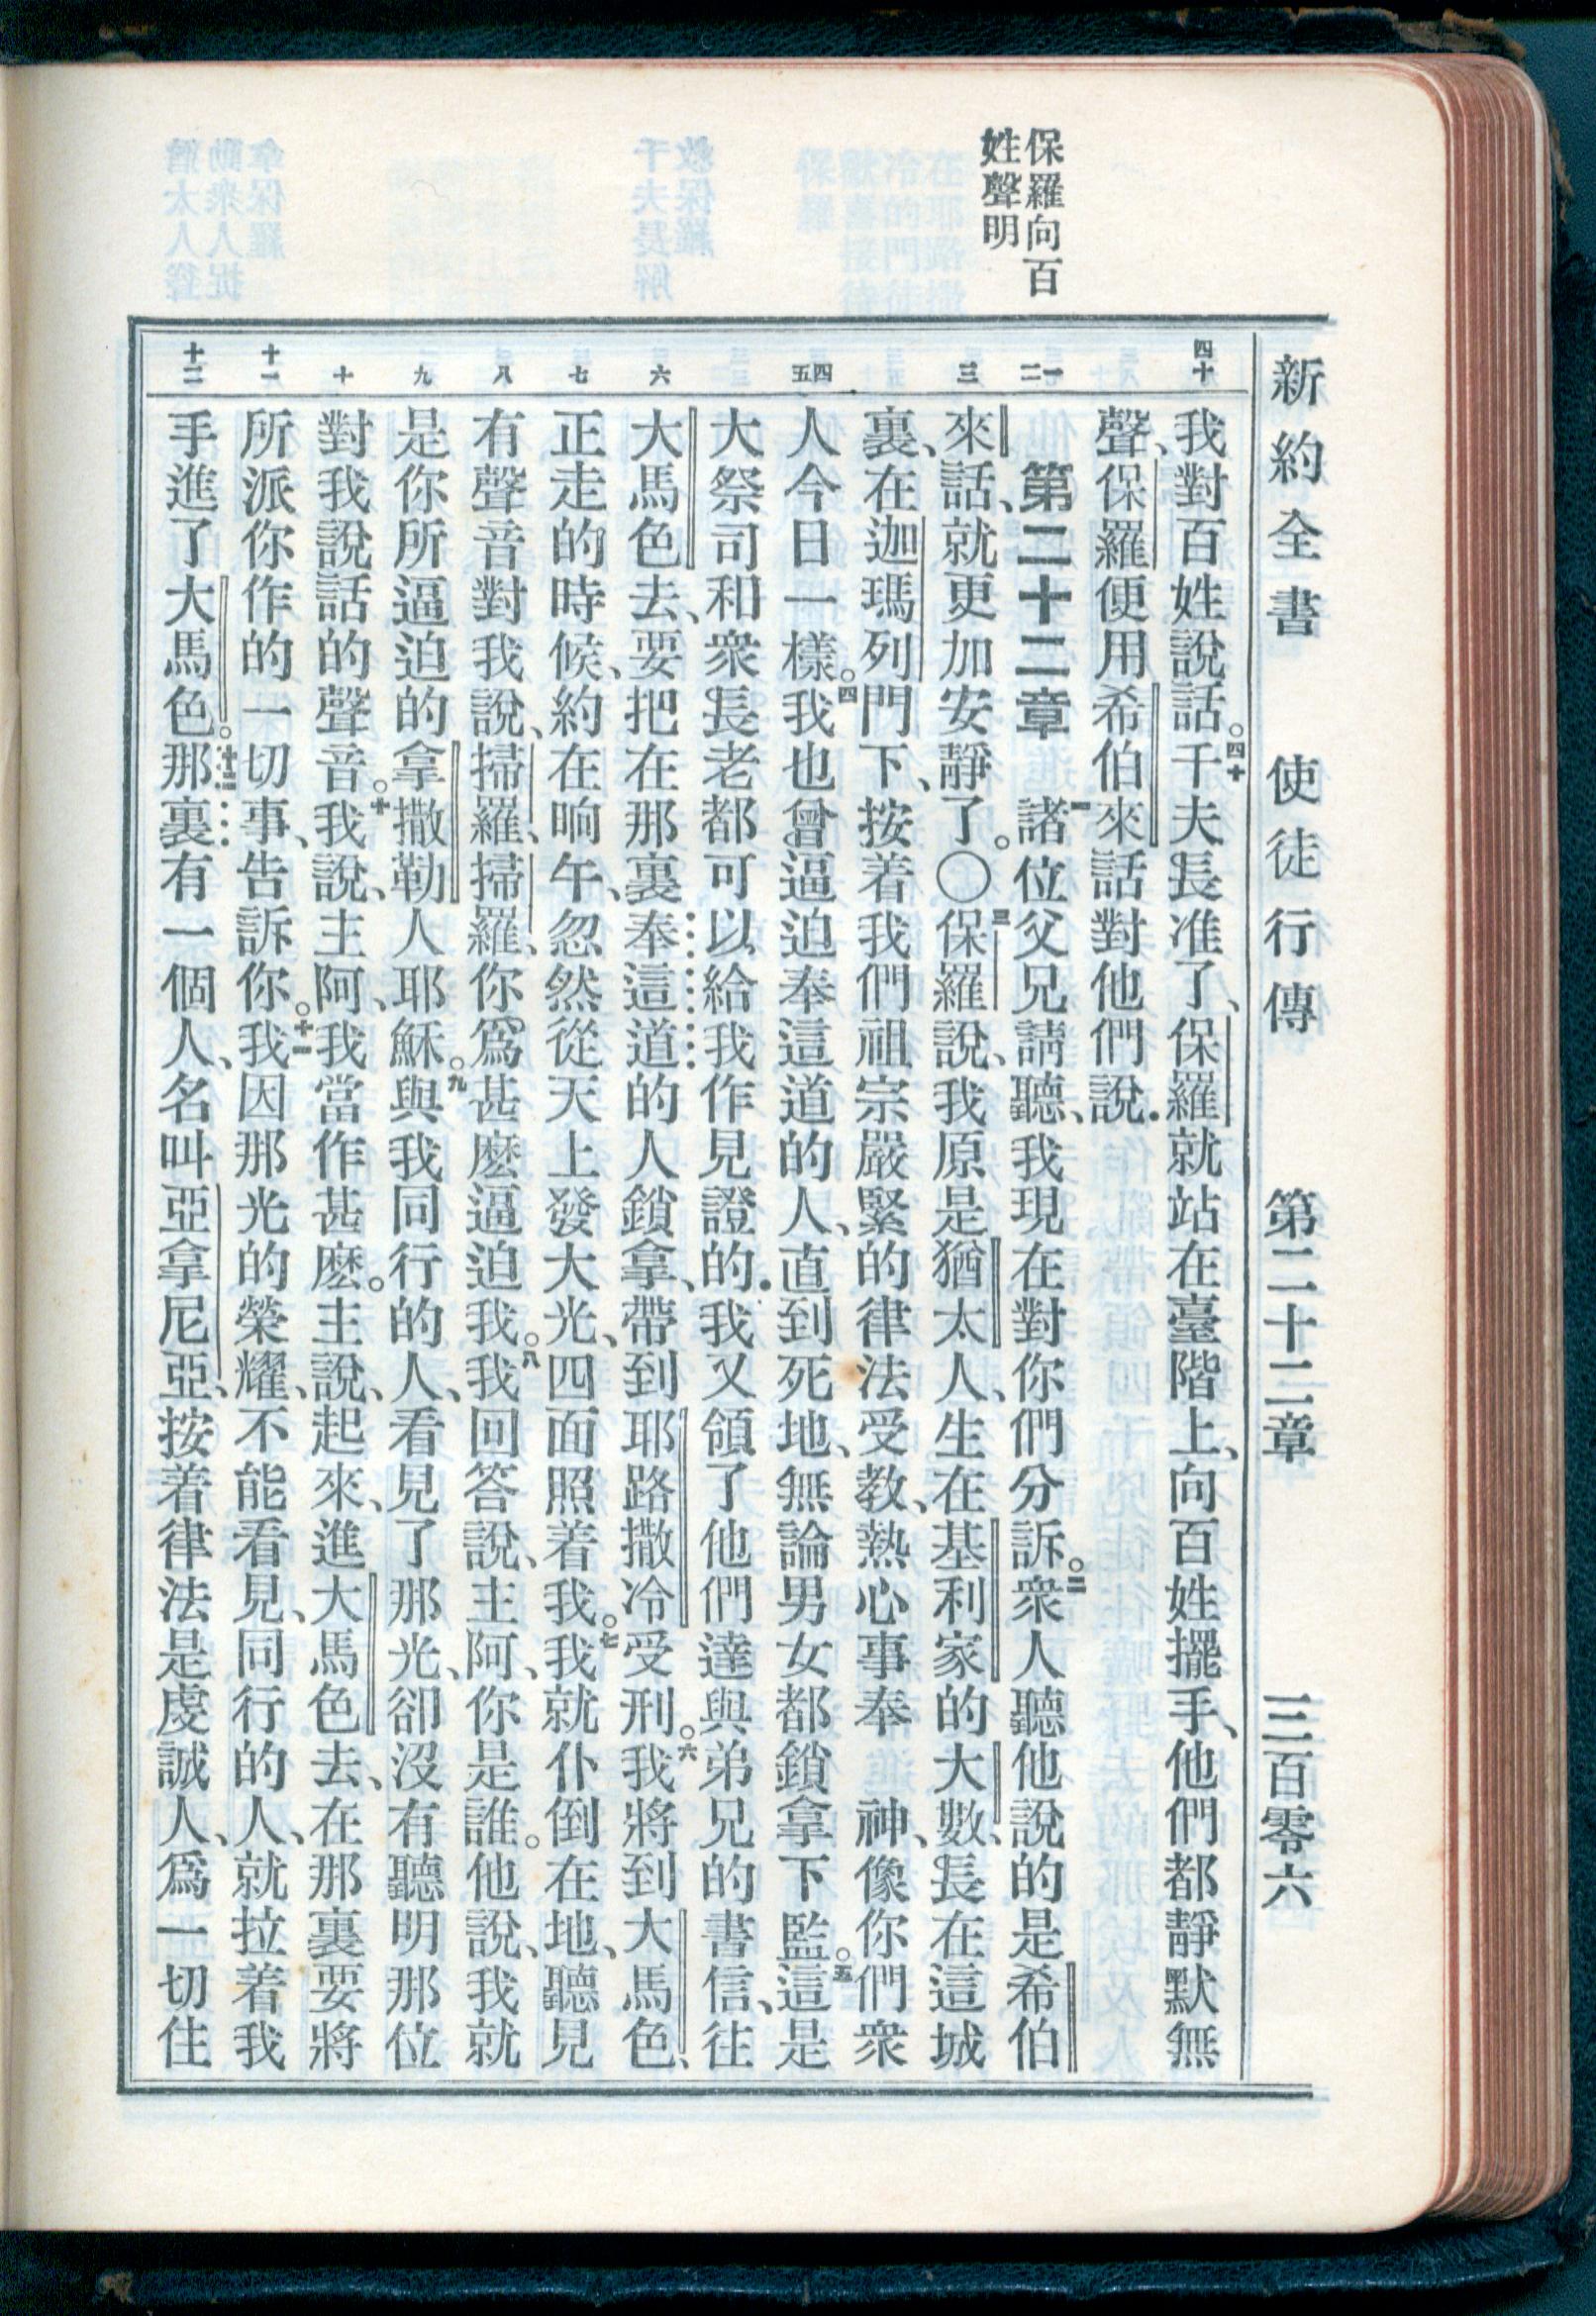 保羅向百
姓聲明
新約全書　使徒行傳　第二十二章　三百零六
四十
一二
三
四五
六
七
八
九
十
十一
十二
我對百姓說話。四十千夫長准了、保羅就站在臺階上、向百姓擺手、他們都靜默無
聲、保羅便用希伯來話對他們說．
第二十二章　一諸位父兄請聽、我現在對你們分訴。二衆人聽他說的是希伯
來話、就更加安靜了。〇三保羅說、我原是猶太人、生在基利家的大數、長在這城
裏、在迦瑪列門下、按着我們祖宗嚴緊的律法受教、熱心事奉　神、像你們衆
人今日一樣。四我也曾逼迫奉這道的人、直到死地、無論男女都鎖拿下監。五這是
大祭司和衆長老都可以給我作見證的．我又領了他們達與弟兄的書信、往
大馬色去、要把在那裏奉這道的人鎖拿、帶到耶路撒冷受刑。六我將到大馬色、
正走的時候、約在晌午、忽然從天上發大光、四面照着我。七我就仆倒在地、聽見
有聲音對我說、掃羅、掃羅、你爲甚麽逼迫我。八我回答說、主阿、你是誰。他說、我就
是你所逼迫的拿撒勒人耶穌。九與我同行的人、看見了那光、卻沒有聽明那位
對我說話的聲音。十我說、主阿、我當作甚麽。主說、起來、進大馬色去、在那裏要將
所派你作的一切事、告訴你。十一我因那光的榮耀、不能看見、同行的人、就拉着我
手進了大馬色。十二那裏有一個人、名叫亞拿尼亞、按着律法是虔誠人、爲一切住